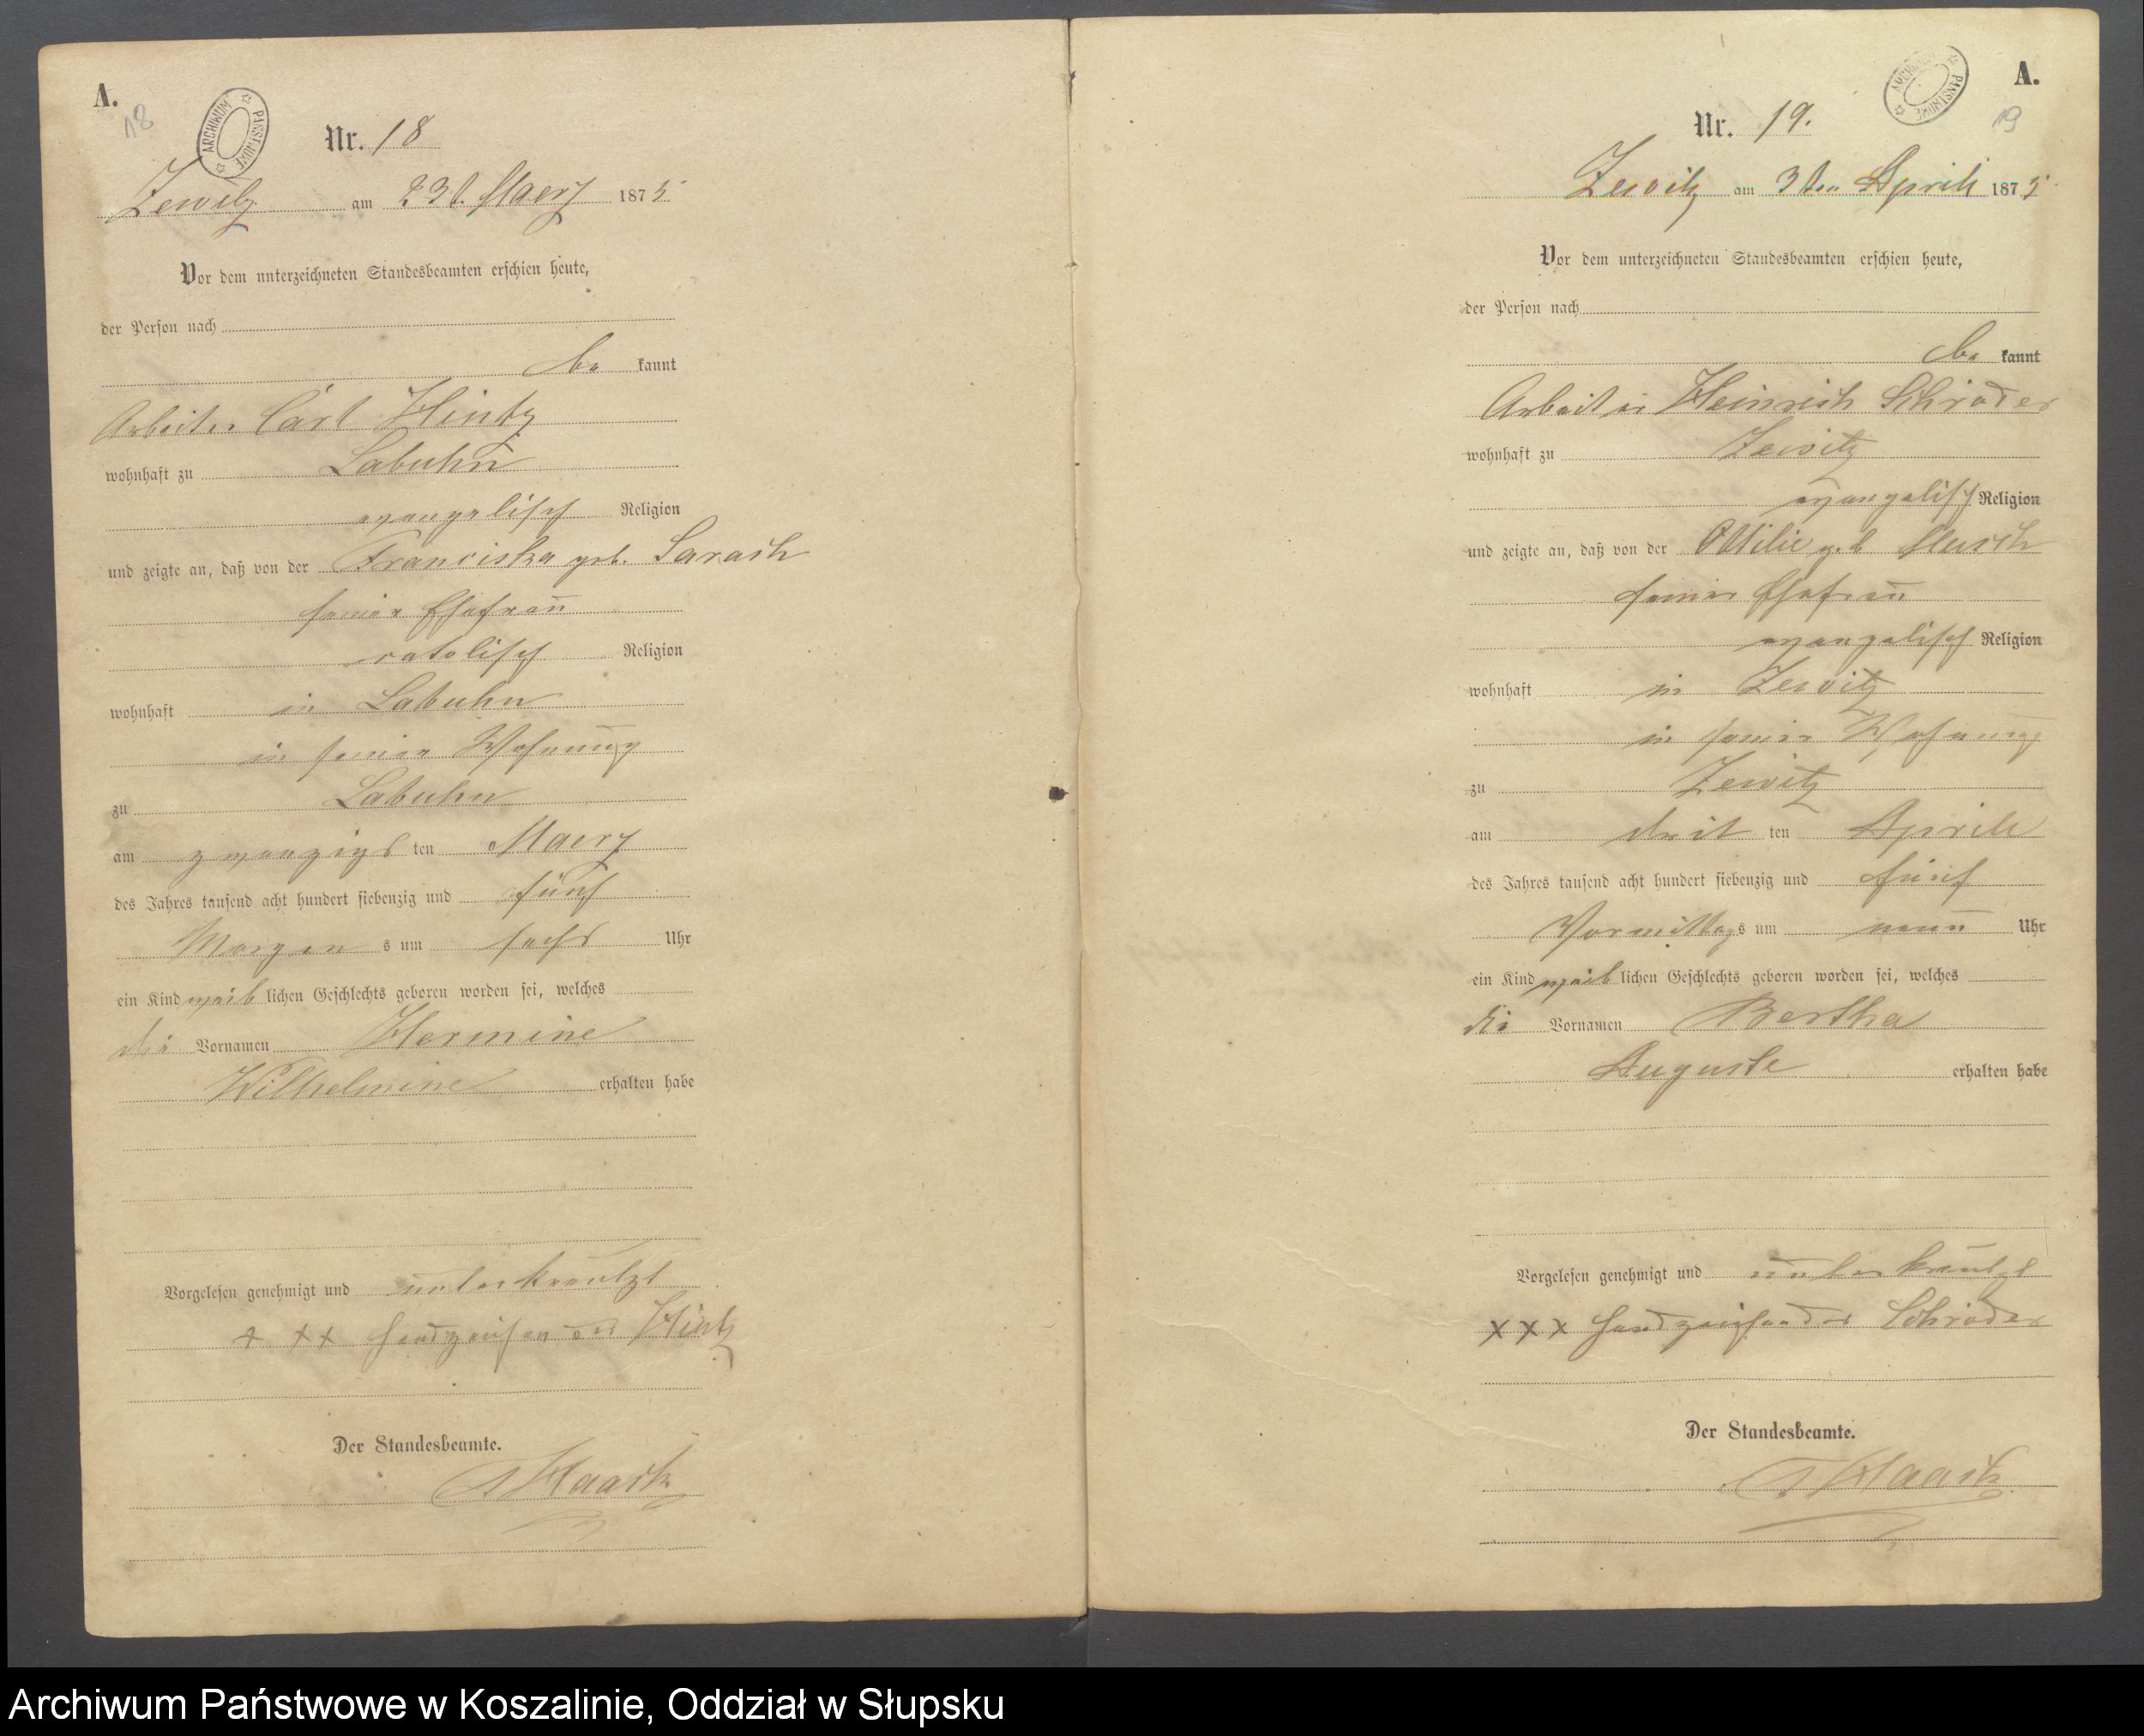 A.
18
ARCHIWUM PAŃSTWOWE
Nr. 18
Zewitz am 23t. Maerz 1875
Vor dem unterzeichneten Standesbeamten erschien heute,
der Person nach
be kannt
Arbeiter Carl Hintz
wohnhaft zu Labuhn
evangelisch Religion
und zeigte an, daß von der Franciska geb.
seiner Ehefrau
catolisch Religion
wohnhaft in Labuhn
in seiner Wohnung
zu Labuhn
am zwanzigsten Maerz
des Jahres tausend acht hundert siebenzig und fünf
Morgens um sechs Uhr
ein Kind weiblichen Geschlechts geboren worden sei, welches
die Vornamen Hermine
Wilhelmine erhalten habe
Vorgelesen genehmigt und unterkreutzt
+ ++ Handzeichen des Hintz
Der Standesbeamte.
Haack
A.
19
ARCHIWUM PAŃSTWOWE
Nr. 19.
Zewitz am 3ten Aprill 1875
Vor dem unterzeichneten Standesbeamten erschien heute,
der Person nach
be kannt
Arbeiter Heinrich Schröder
wohnhaft zu Zewitz
evangelisch Religion
und zeigte an, daß von der Ottilie geb
seiner Ehefrau
evangelisch Religion
wohnhaft in Zewitz
in seiner Wohnung
zu Zewitz
am dritten Aprill
des Jahres tausend acht hundert siebenzig und fünf
Vormittags um neun Uhr
ein Kind weiblichen Geschlechts geboren worden sei, welches
die Vornamen Bertha
Auguste erhalten habe
Vorgelesen genehmigt und unterkreutzt
x x x Handzeichen des Schröder
Der Standesbeamte.
Haack
Archiwum Państwowe w Koszalinie, Oddział w Słupsku